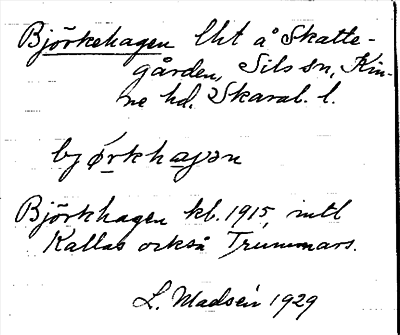 Björkehagen lht å Skatte-
gården, Sils sn, Kin-
ne hd, Skarab. l.
Björkhagen kb. 1915, mtl
Kallas också Trummars.
L. Madsén 1929